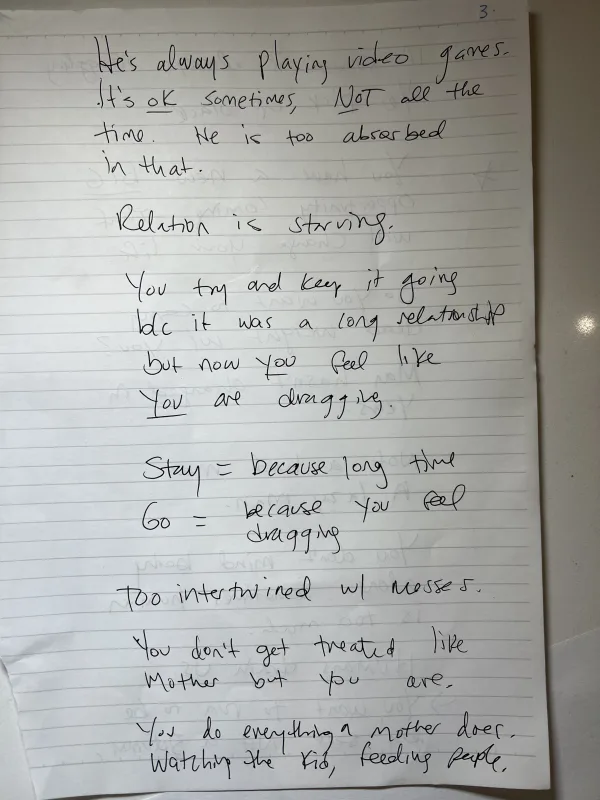 3.
He's always playing video games.
It's OK sometimes, NOT all the
time. He is too absorbed
in that.
Relation is starving.
You try and keep it going
b/c it was a long relationship
but now you feel like
you are dragging.
Stay = because long time
Go = because you feel
dragging
Too intertwined w/ messes.
You don't get treated like
Mother but you are.
You do everything a mother does.
Watching the kid, feeding people,